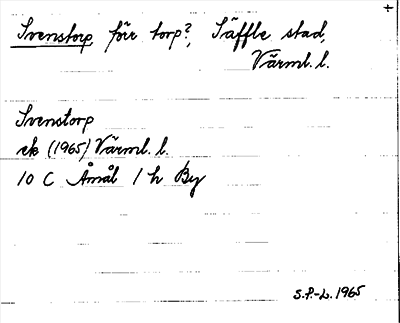 Svenstorp, förr torp?, Säffle stad,
Värml. l.
Svenstorp
ek (1965) Värml. l.
10 C Åmål 1 h By
S.P.-L. 1965